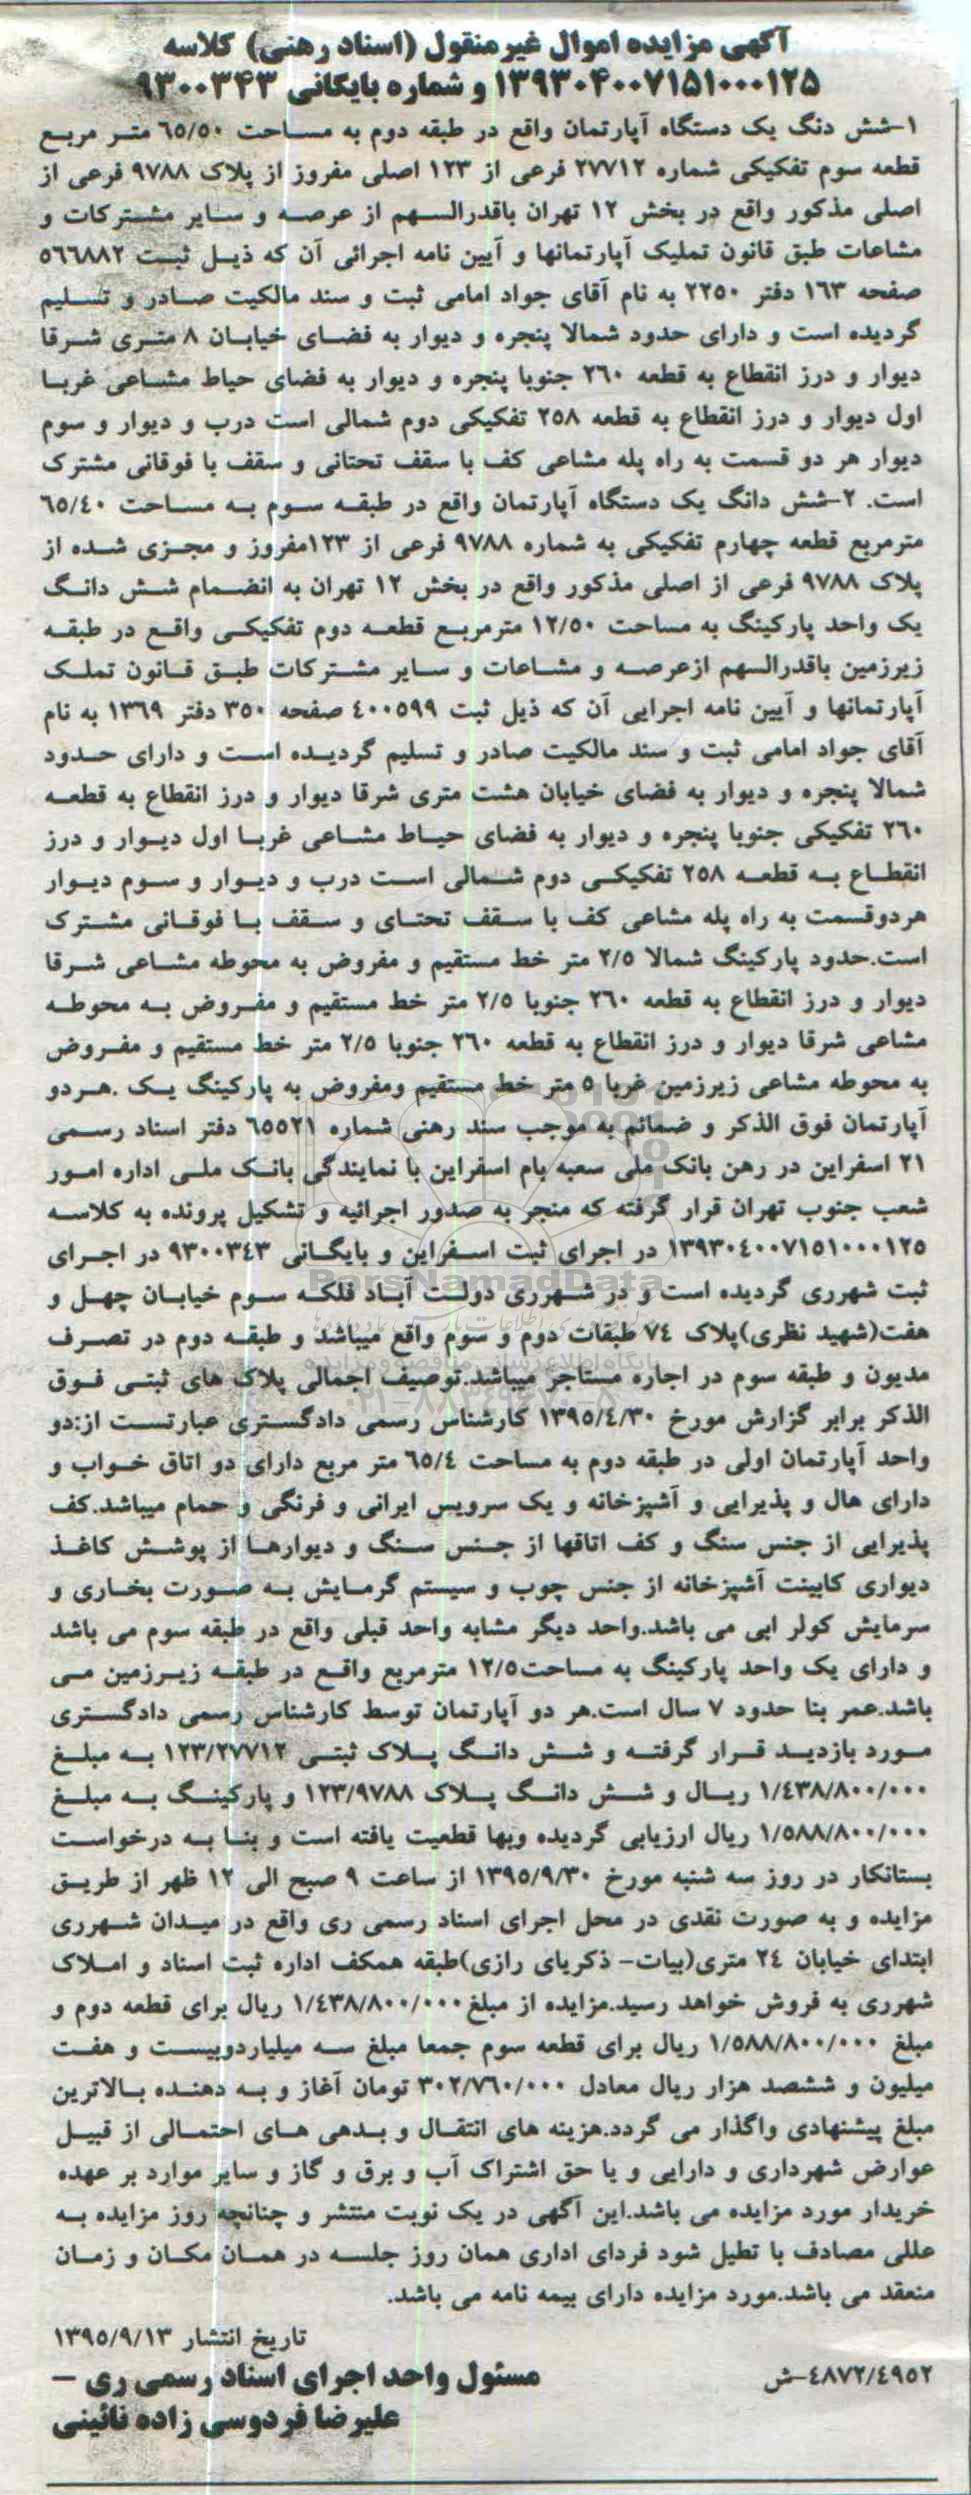 آگهی مزایده اموال غیرمنقول (اسناد رهنی) کلاسه
۱۳۹۳۰۴۰۰۷۱۵۱۰۰۰۱۲۵ و شماره بایگانی ۹۳۰۰۳۴۳
۱-شش دنگ یک دستگاه آپارتمان واقع در طبقه دوم به مساحت ۶۵/۵۰ متر مربع
قطعه سوم تفکیکی شماره ۲۷۷۱۲ فرعی از ۱۲۳ اصلی مفروز از پلاک ۹۷۸۸ فرعی از
اصلی مذکور واقع در بخش ۱۲ تهران باقدرالسهم از عرصه و سایر مشترکات و
مشاعات طبق قانون تملیک آپارتمانها و آیین نامه اجرائی آن که ذیل ثبت ۵۶۶۸۸۲
صفحه ۱۶۳ دفتر ۲۲۵۰ به نام آقای جواد امامی ثبت و سند مالکیت صادر و تسلیم
گردیده است و دارای حدود شمالا پنجره و دیوار به فضای خیابان ۸ متری شرقا
دیوار و درز انقطاع به قطعه ۲۶۰ جنوبا پنجره و دیوار به فضای حیاط مشاعی غربا
اول دیوار و درز انقطاع به قطعه ۲۵۸ تفکیکی دوم شمالی است درب و دیوار و سوم
دیوار هر دو قسمت به راه پله مشاعی کف با سقف تحتانی و سقف با فوقانی مشترک
است. ۲-شش دانگ یک دستگاه آپارتمان واقع در طبقه سوم به مساحت ۶۵/۴۰
مترمربع قطعه چهارم تفکیکی به شماره ۹۷۸۸ فرعی از ۱۲۳مفروز و مجزی شده از
پلاک ۹۷۸۸ فرعی از اصلی مذکور واقع در بخش ۱۲ تهران به انضمام شش دانگ
یک واحد پارکینگ به مساحت ۱۲/۵۰ مترمربع قطعه دوم تفکیکی واقع در طبقه
زیرزمین باقدرالسهم ازعرصه و مشاعات و سایر مشترکات طبق قانون تملک
آپارتمانها و آیین نامه اجرایی آن که ذیل ثبت ۴۰۰۵۹۹ صفحه ۳۵۰ دفتر ۱۳۶۹ به نام
آقای جواد امامی ثبت و سند مالکیت صادر و تسلیم گردیده است و دارای حدود
شمالا پنجره و دیوار به فضای خیابان هشت متری شرقا دیوار و درز انقطاع به قطعه
۲۶۰ تفکیکی جنوبا پنجره و دیوار به فضای حیاط مشاعی غربا اول دیوار و درز
انقطاع به قطعه ۲۵۸ تفکیکی دوم شمالی است درب و دیوار و سوم دیوار
هردوقسمت به راه پله مشاعی کف با سقف تحتای و سقف با فوقانی مشترک
است.حدود پارکینگ شمالا ۲/۵ متر خط مستقیم و مفروض به محوطه مشاعی شرقا
دیوار و درز انقطاع به قطعه ۲۶۰ جنوبا ۲/۵ متر خط مستقیم و مفروض به محوطه
مشاعی شرقا دیوار و درز انقطاع به قطعه ۲۶۰ جنوبا ۲/۵ متر خط مستقیم و مفروض
به محوطه مشاعی زیرزمین غربا ۵ متر خط مستقیم ومفروض به پارکینگ یک .هردو
آپارتمان فوق الذکر و ضمائم به موجب سند رهنی شماره ۶۵۵۲۱ دفتر اسناد رسمی
۲۱ اسفراین در رهن بانک ملی سعبه بام اسفراین با نمایندگی بانک ملی اداره امور
شعب جنوب تهران قرار گرفته که منجر به صدور اجرائیه و تشکیل پرونده به کلاسه
۱۳۹۳۰۴۰۰۷۱۵۱۰۰۰۱۲۵ در اجرای ثبت اسفراین و بایگانی ۹۳۰۰۳۴۳ در اجرای
ثبت شهرری گردیده است و در شهرری دولت آباد فلکه سوم خیابان چهل و
هفت(شهید نظری)پلاک ۷۴ طبقات دوم و سوم واقع میباشد و طبقه دوم در تصرف
مدیون و طبقه سوم در اجاره مستاجر میباشد.توصیف اجمالی پلاک های ثبتی فوق
الذکر برابر گزارش مورخ ۱۳۹۵/۴/۳۰ کارشناس رسمی دادگستری عبارتست از:دو
واحد آپارتمان اولی در طبقه دوم به مساحت ۶۵/۴ متر مربع دارای دو اتاق خواب و
دارای هال و پذیرایی و آشپزخانه و یک سرویس ایرانی و فرنگی و حمام میباشد.کف
پذیرایی از جنس سنگ و کف اتاقها از جنس سنگ و دیوارها از پوشش کاغذ
دیواری کابینت آشپزخانه از جنس چوب و سیستم گرمایش به صورت بخاری و
سرمایش کولر ابی می باشد.واحد دیگر مشابه واحد قبلی واقع در طبقه سوم می باشد
و دارای یک واحد پارکینگ به مساحت۱۲/۵ مترمربع واقع در طبقه زیرزمین می
باشد.عمر بنا حدود ۷ سال است.هر دو آپارتمان توسط کارشناس رسمی دادگستری
مورد بازدید قرار گرفته و شش دانگ پلاک ثبتی ۱۲۳/۲۷۷۱۲ به مبلغ
۱/۴۳۸/۸۰۰/۰۰۰ ریال و شش دانگ پلاک ۱۲۳/۹۷۸۸ و پارکینگ به مبلغ
۱/۵۸۸/۸۰۰/۰۰۰ ریال ارزیابی گردیده وبها قطعیت یافته است و بنا به درخواست
بستانکار در روز سه شنبه مورخ ۱۳۹۵/۹/۳۰ از ساعت ۹ صبح الی ۱۲ ظهر از طریق
مزایده و به صورت نقدی در محل اجرای اسناد رسمی ری واقع در میدان شهرری
ابتدای خیابان ۲۴ متری(بیات- ذکریای رازی)طبقه همکف اداره ثبت اسناد و املاک
شهرری به فروش خواهد رسید.مزایده از مبلغ۱/۴۳۸/۸۰۰/۰۰۰ ریال برای قطعه دوم و
مبلغ ۱/۵۸۸/۸۰۰/۰۰۰ ریال برای قطعه سوم جمعا مبلغ سه میلیاردوبیست و هفت
میلیون و ششصد هزار ریال معادل ۳۰۲/۷۶۰/۰۰۰ تومان آغاز و به دهنده بالاترین
مبلغ پیشنهادی واگذار می گردد.هزینه های انتقال و بدهی های احتمالی از قبیل
عوارض شهرداری و دارایی و یا حق اشتراک آب و برق و گاز و سایر موارد بر عهده
خریدار مورد مزایده می باشد.این آگهی در یک نوبت منتشر و چنانچه روز مزایده به
عللی مصادف با تطیل شود فردای اداری همان روز جلسه در همان مکان و زمان
منعقد می باشد.مورد مزایده دارای بیمه نامه می باشد.
تاریخ انتشار ۱۳۹۵/۹/۱۳
۴۸۷۲/۴۹۵۲-ش
مسئول واحد اجرای اسناد رسمی ری -
علیرضا فردوسی زاده نائینی
ParsNamadData